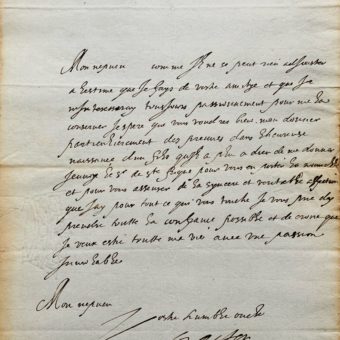 Mon nepueu comme Il ne se peut rien adjouster
a lestime que Je fays de vostre amitye et que Je
toujours passionement pour me la
conserver Jespere que vous voudres bien men donner
particulierement des preuves dans lheureuse
naissance dun filz quil a pleu a dieu de me donner
Jenuoye le Sr de pour vous en
et pour vous asseurer de la syncere et veritable affection
que Jay pour tout ce qui vous touche Je vous prie dy
prendre toutte la confiance possible et de croire que
Je veux estre toutte ma vie avec une passion
Inuiolable
Mon nepueu
Vostre humble oncle
Gaston